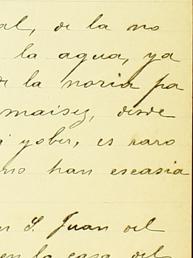 al, de la no
la agua, ya
de la noria pa
maisez, desde
yober, es raro
no han escasia
S. Juan del
en la casa del